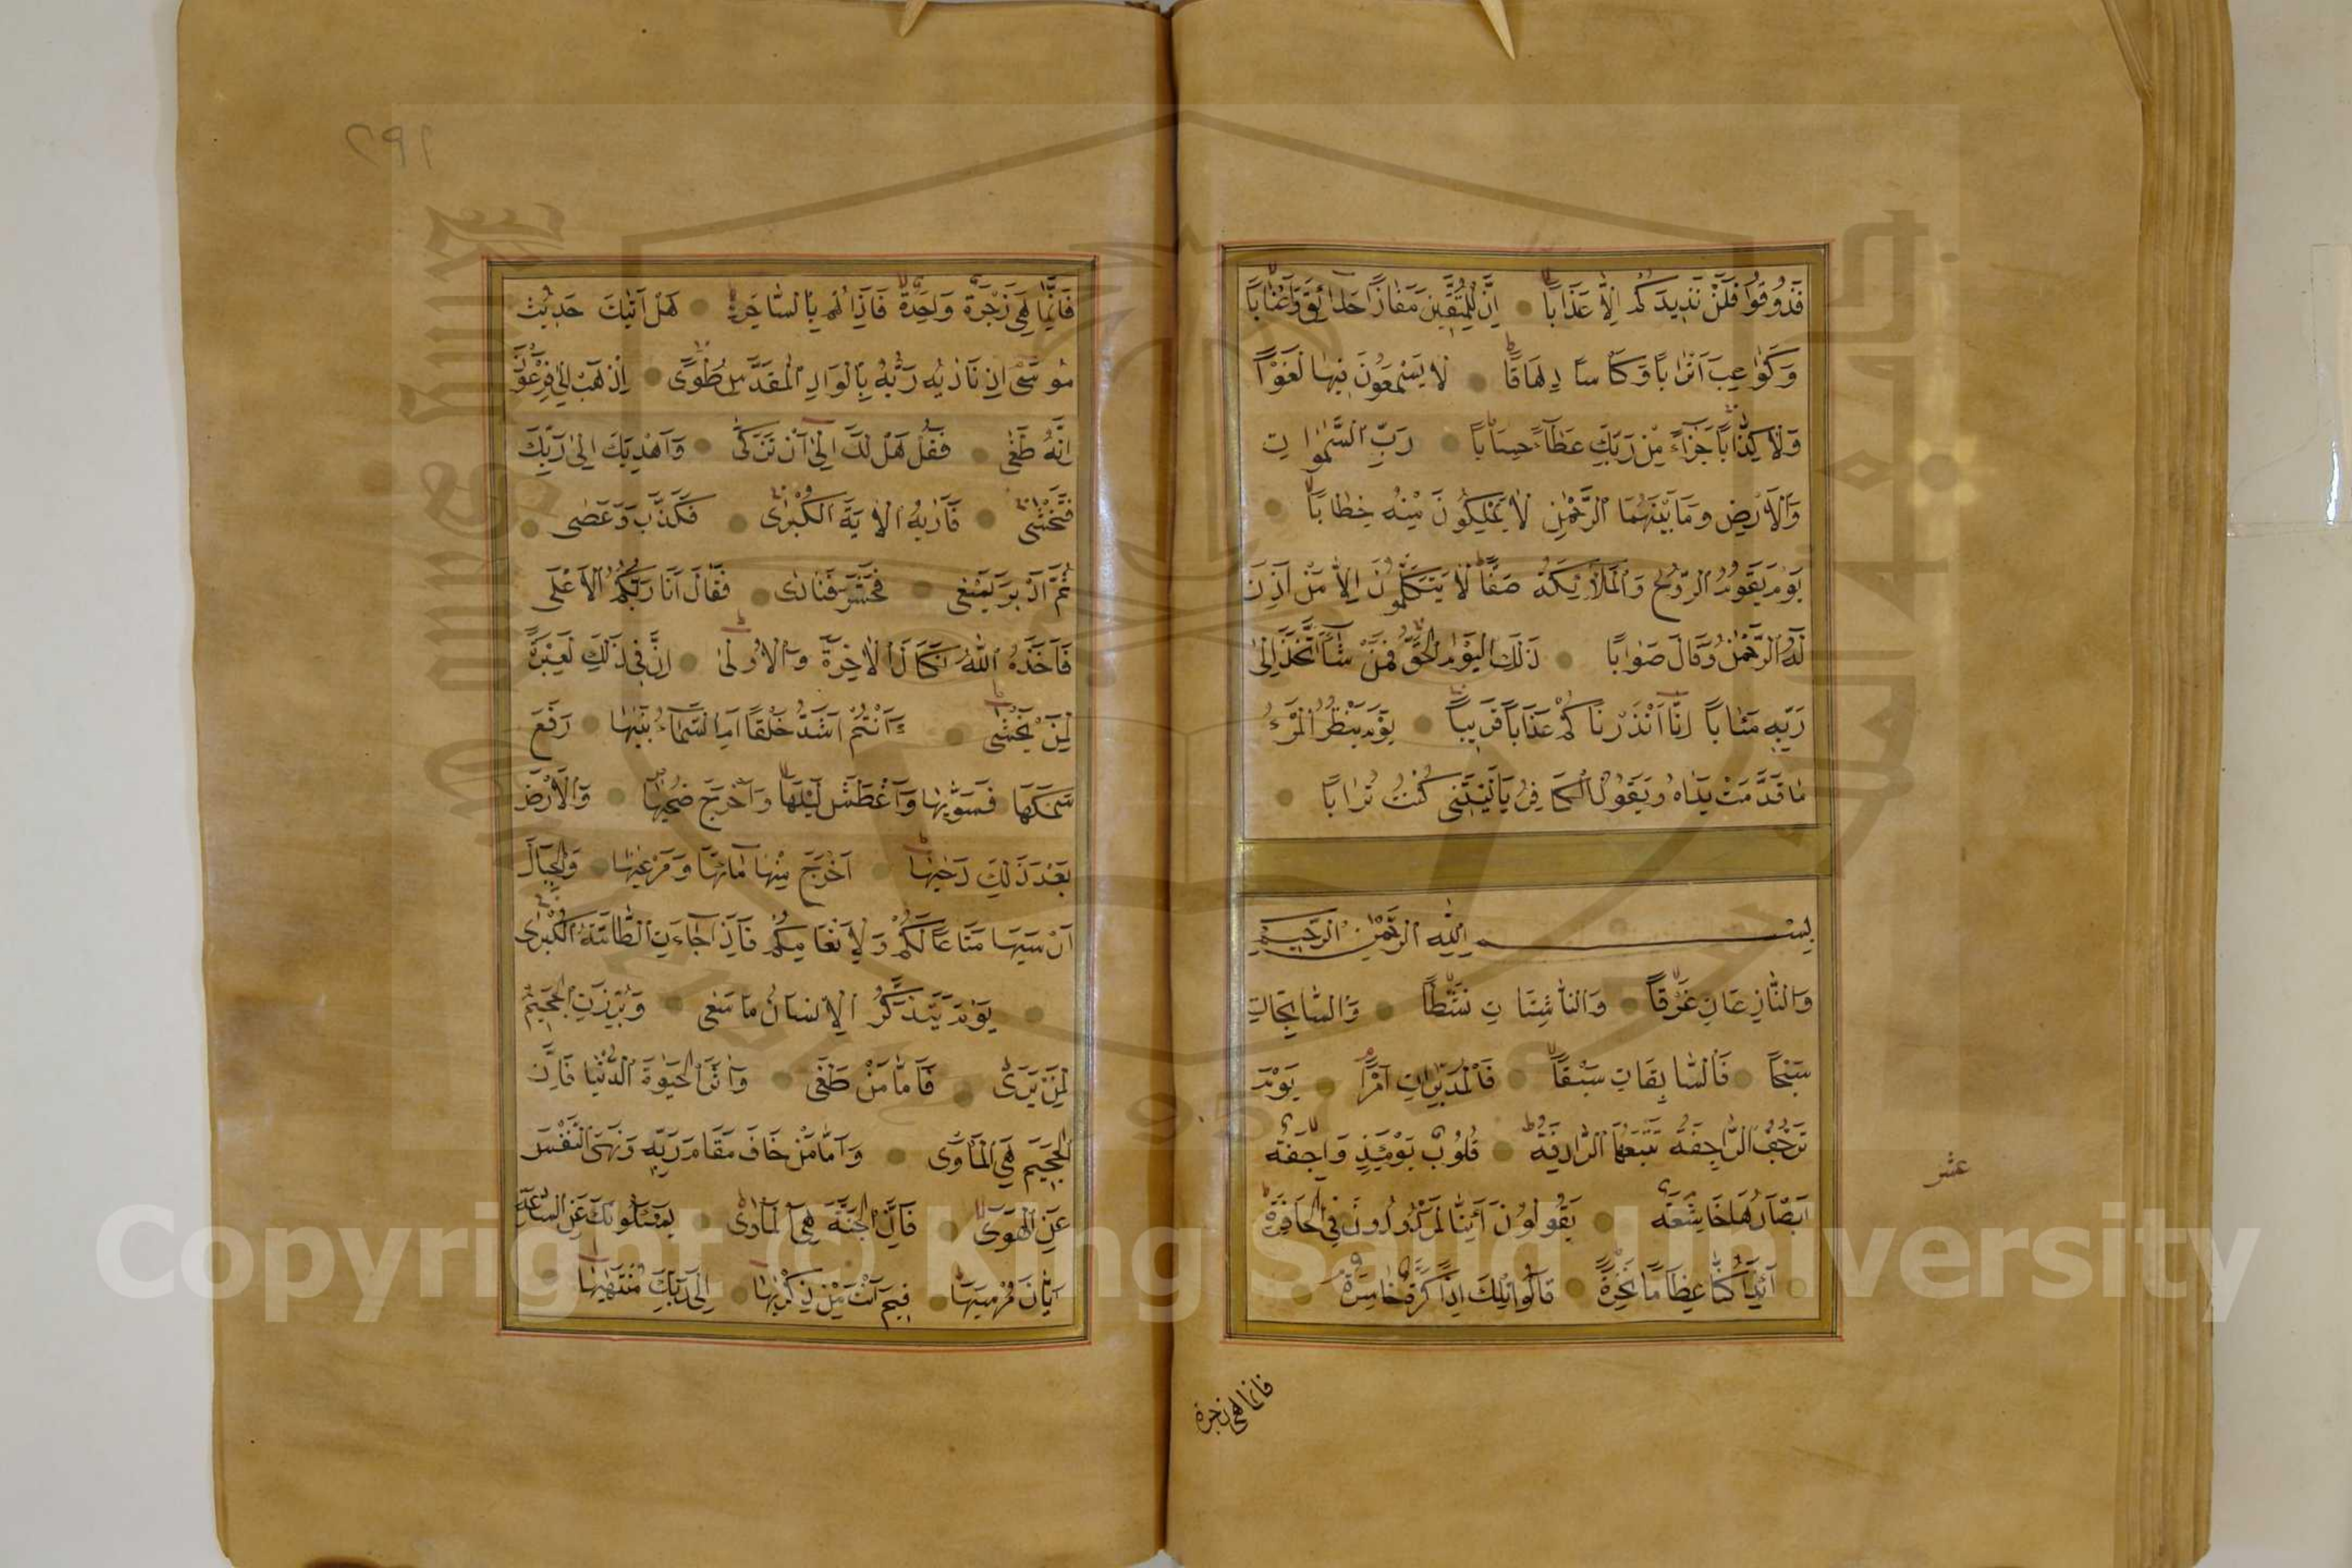 فَذُوقُوا فَلَنْ نَزِيدَكُمْ اِلَّا عَذَابًا اِنَّ لِلْمُتَّقِينَ مَفَازًا حَدَائِقَ وَاَعْنَابًا
وَكَوَاعِبَ اَتْرَابًا وَكَاْسًا دِهَاقًا لَا يَسْمَعُونَ فِيهَا لَغْوًا
وَلَا كِذَّابًا جَزَآءً مِنْ رَبِّكَ عَطَآءً حِسَابًا رَبِّ السَّمٰوَاتِ
وَالْاَرْضِ وَمَا بَيْنَهُمَا الرَّحْمٰنِ لَا يَمْلِكُونَ مِنْهُ خِطَابًا
يَوْمَ يَقُومُ الرُّوحُ وَالْمَلٰٓئِكَةُ صَفًّا لَا يَتَكَلَّمُونَ اِلَّا مَنْ اَذِنَ
لَهُ الرَّحْمٰنُ وَقَالَ صَوَابًا ذٰلِكَ الْيَوْمُ الْحَقُّ فَمَنْ شَآءَ اتَّخَذَ اِلٰى
رَبِّهِ مَئَابًا اِنَّآ اَنْذَرْنَاكُمْ عَذَابًا قَرِيبًا يَوْمَ يَنْظُرُ الْمَرْءُ
مَا قَدَّمَتْ يَدَاهُ وَيَقُولُ الْكَافِرُ يَا لَيْتَنِى كُنْتُ تُرَابًا
بِسْمِ اللّٰهِ الرَّحْمٰنِ الرَّحِيمِ
وَالنَّازِعَاتِ غَرْقًا وَالنَّاشِطَاتِ نَشْطًا وَالسَّابِحَاتِ
سَبْحًا فَالسَّابِقَاتِ سَبْقًا فَالْمُدَبِّرَاتِ اَمْرًا يَوْمَ
تَرْجُفُ الرَّاجِفَةُ تَتْبَعُهَا الرَّادِفَةُ قُلُوبٌ يَوْمَئِذٍ وَاجِفَةٌ
عشر
اَبْصَارُهَا خَاشِعَةٌ يَقُولُونَ ءَاِنَّا لَمَرْدُودُونَ فِى الْحَافِرَةِ
اَئِذَا كُنَّا عِظَامًا نَخِرَةً قَالُوا تِلْكَ اِذًا كَرَّةٌ خَاسِرَةٌ
فانما هى زجرة
٢٩٢
فَاِنَّمَا هِىَ زَجْرَةٌ وَاحِدَةٌ فَاِذَا هُمْ بِالسَّاهِرَةِ هَلْ اَتٰيكَ حَدِيثُ
مُوسٰى اِذْ نَادٰيهُ رَبُّهُ بِالْوَادِ الْمُقَدَّسِ طُوًى اِذْهَبْ اِلٰى فِرْعَوْنَ
اِنَّهُ طَغٰى فَقُلْ هَلْ لَكَ اِلٰٓى اَنْ تَزَكّٰى وَاَهْدِيَكَ اِلٰى رَبِّكَ
فَتَخْشٰى فَاَرٰيهُ الْاٰيَةَ الْكُبْرٰى فَكَذَّبَ وَعَصٰى
ثُمَّ اَدْبَرَ يَسْعٰى فَحَشَرَ فَنَادٰى فَقَالَ اَنَا رَبُّكُمُ الْاَعْلٰى
فَاَخَذَهُ اللّٰهُ نَكَالَ الْاٰخِرَةِ وَالْاُولٰى اِنَّ فِى ذٰلِكَ لَعِبْرَةً
لِمَنْ يَخْشٰى ءَاَنْتُمْ اَشَدُّ خَلْقًا اَمِ السَّمَآءُ بَنٰيهَا رَفَعَ
سَمْكَهَا فَسَوّٰيهَا وَاَغْطَشَ لَيْلَهَا وَاَخْرَجَ ضُحٰيهَا وَالْاَرْضَ
بَعْدَ ذٰلِكَ دَحٰيهَا اَخْرَجَ مِنْهَا مَآءَهَا وَمَرْعٰيهَا وَالْجِبَالَ
اَرْسٰيهَا مَتَاعًا لَكُمْ وَلِاَنْعَامِكُمْ فَاِذَا جَآءَتِ الطَّآمَّةُ الْكُبْرٰى
يَوْمَ يَتَذَكَّرُ الْاِنْسَانُ مَا سَعٰى وَبُرِّزَتِ الْجَحِيمُ
لِمَنْ يَرٰى فَاَمَّا مَنْ طَغٰى وَاٰثَرَ الْحَيٰوةَ الدُّنْيَا فَاِنَّ
الْجَحِيمَ هِىَ الْمَاْوٰى وَاَمَّا مَنْ خَافَ مَقَامَ رَبِّهِ وَنَهَى النَّفْسَ
عَنِ الْهَوٰى فَاِنَّ الْجَنَّةَ هِىَ الْمَاْوٰى يَسْئَلُونَكَ عَنِ السَّاعَةِ
اَيَّانَ مُرْسٰيهَا فِيمَ اَنْتَ مِنْ ذِكْرٰيهَا اِلٰى رَبِّكَ مُنْتَهٰيهَا
Copyright © King Saud University
1957